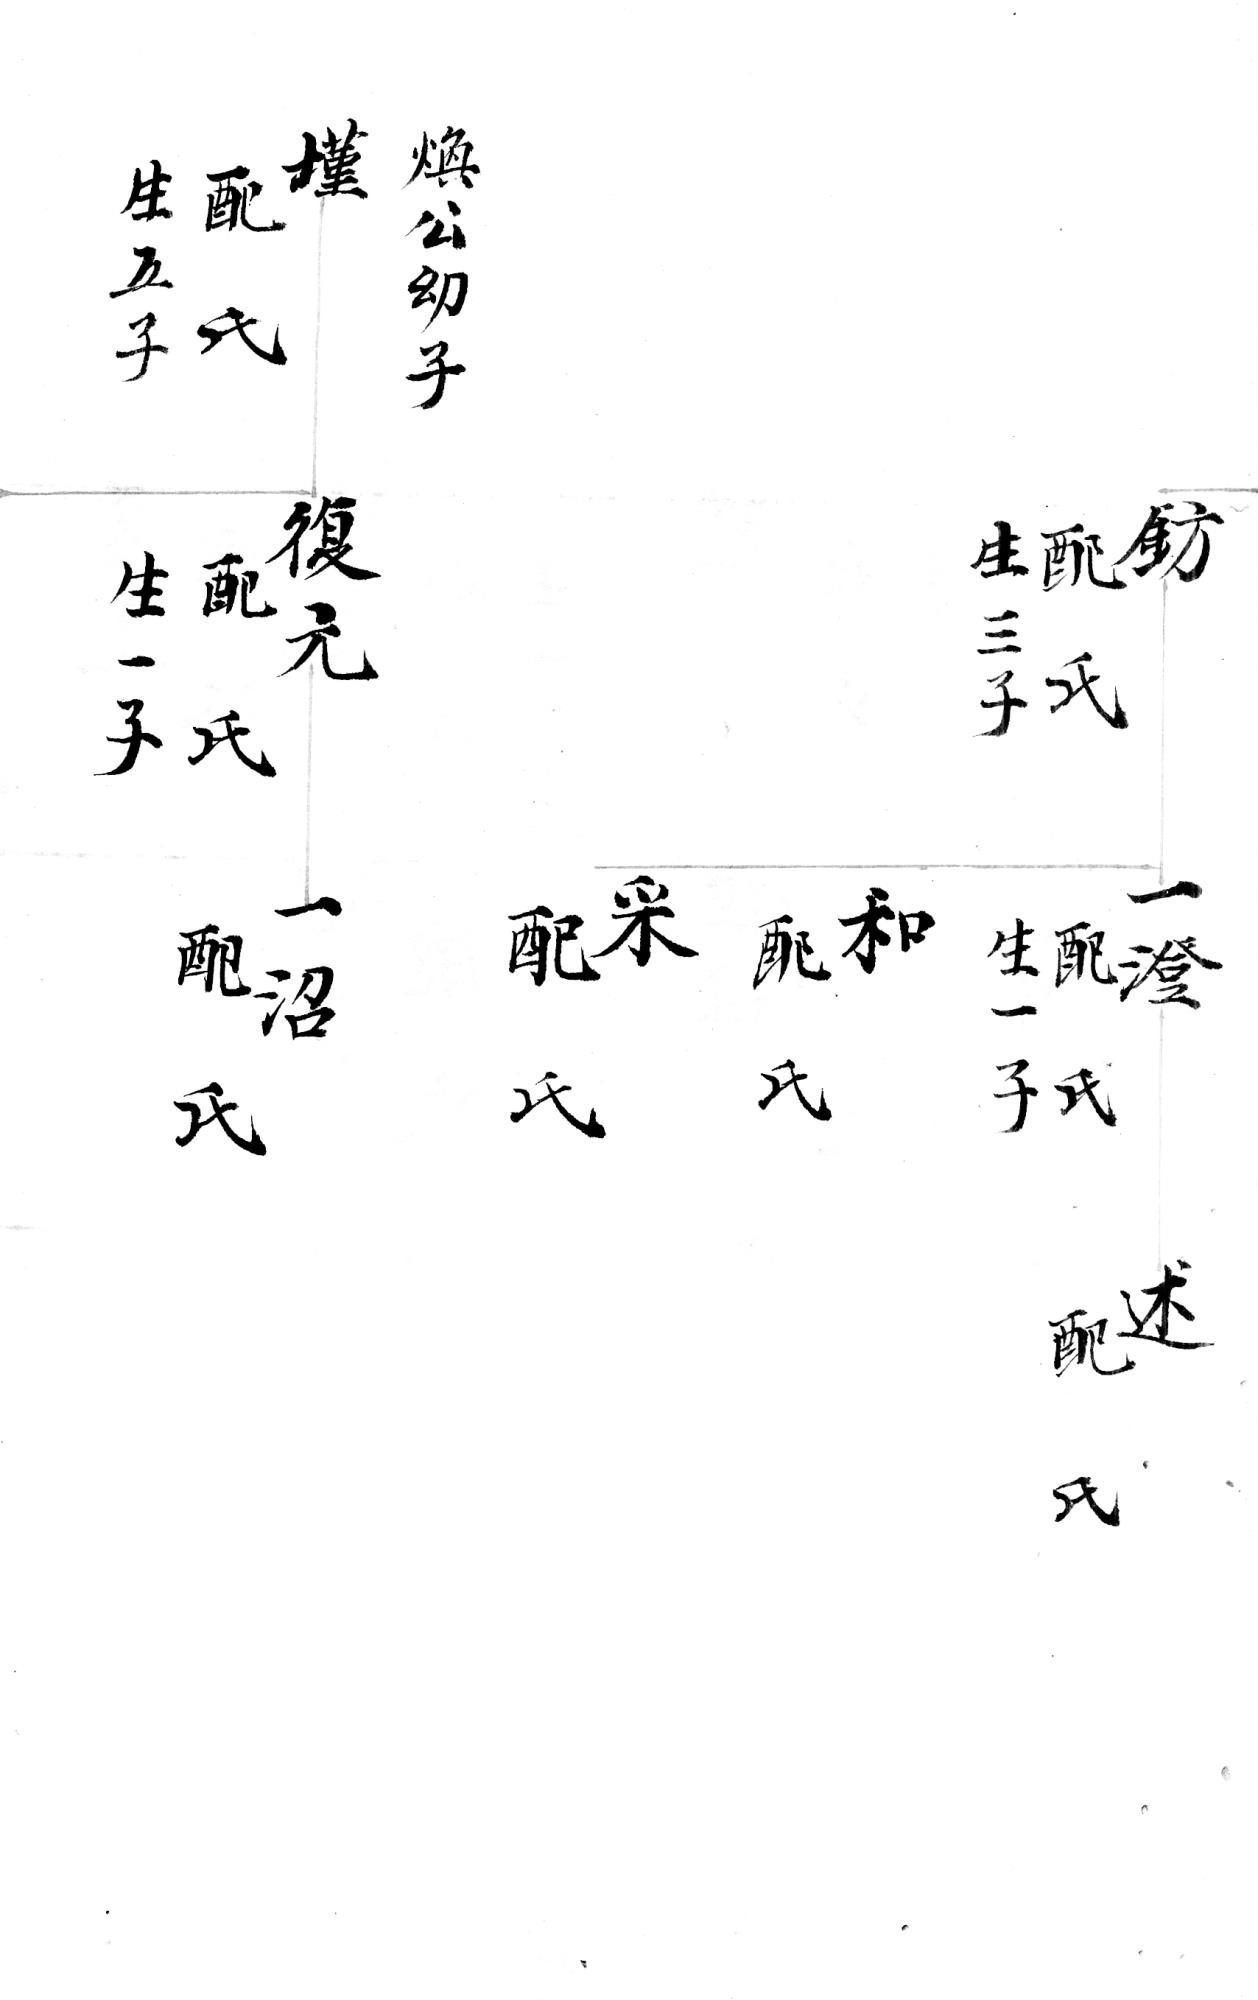 鈁
配 氏
生三子
一澄
配 氏
生一子
述
配 氏
和
配 氏
采
配 氏
煥公幼子
墐
配 氏
生五子
復元
配 氏
生一子
一沼
配 氏